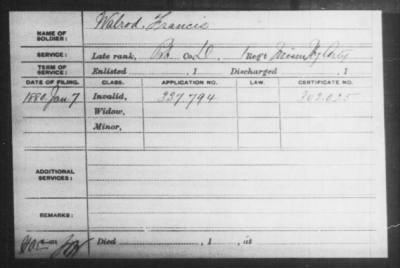 NAME OF SOLDIER: Walrod, Francis
SERVICE: Late rank, Pvt Co. D, 1 Reg't Hvy Arty
TERM OF SERVICE: Enlisted , 1 Discharged , 1
DATE OF FILING. CLASS. APPLICATION NO. LAW. CERTIFICATE NO.
1880 Jan 7 Invalid, 337.794 202.025
Widow,
Minor,
ADDITIONAL SERVICES:
REMARKS:
Died , 1 , at